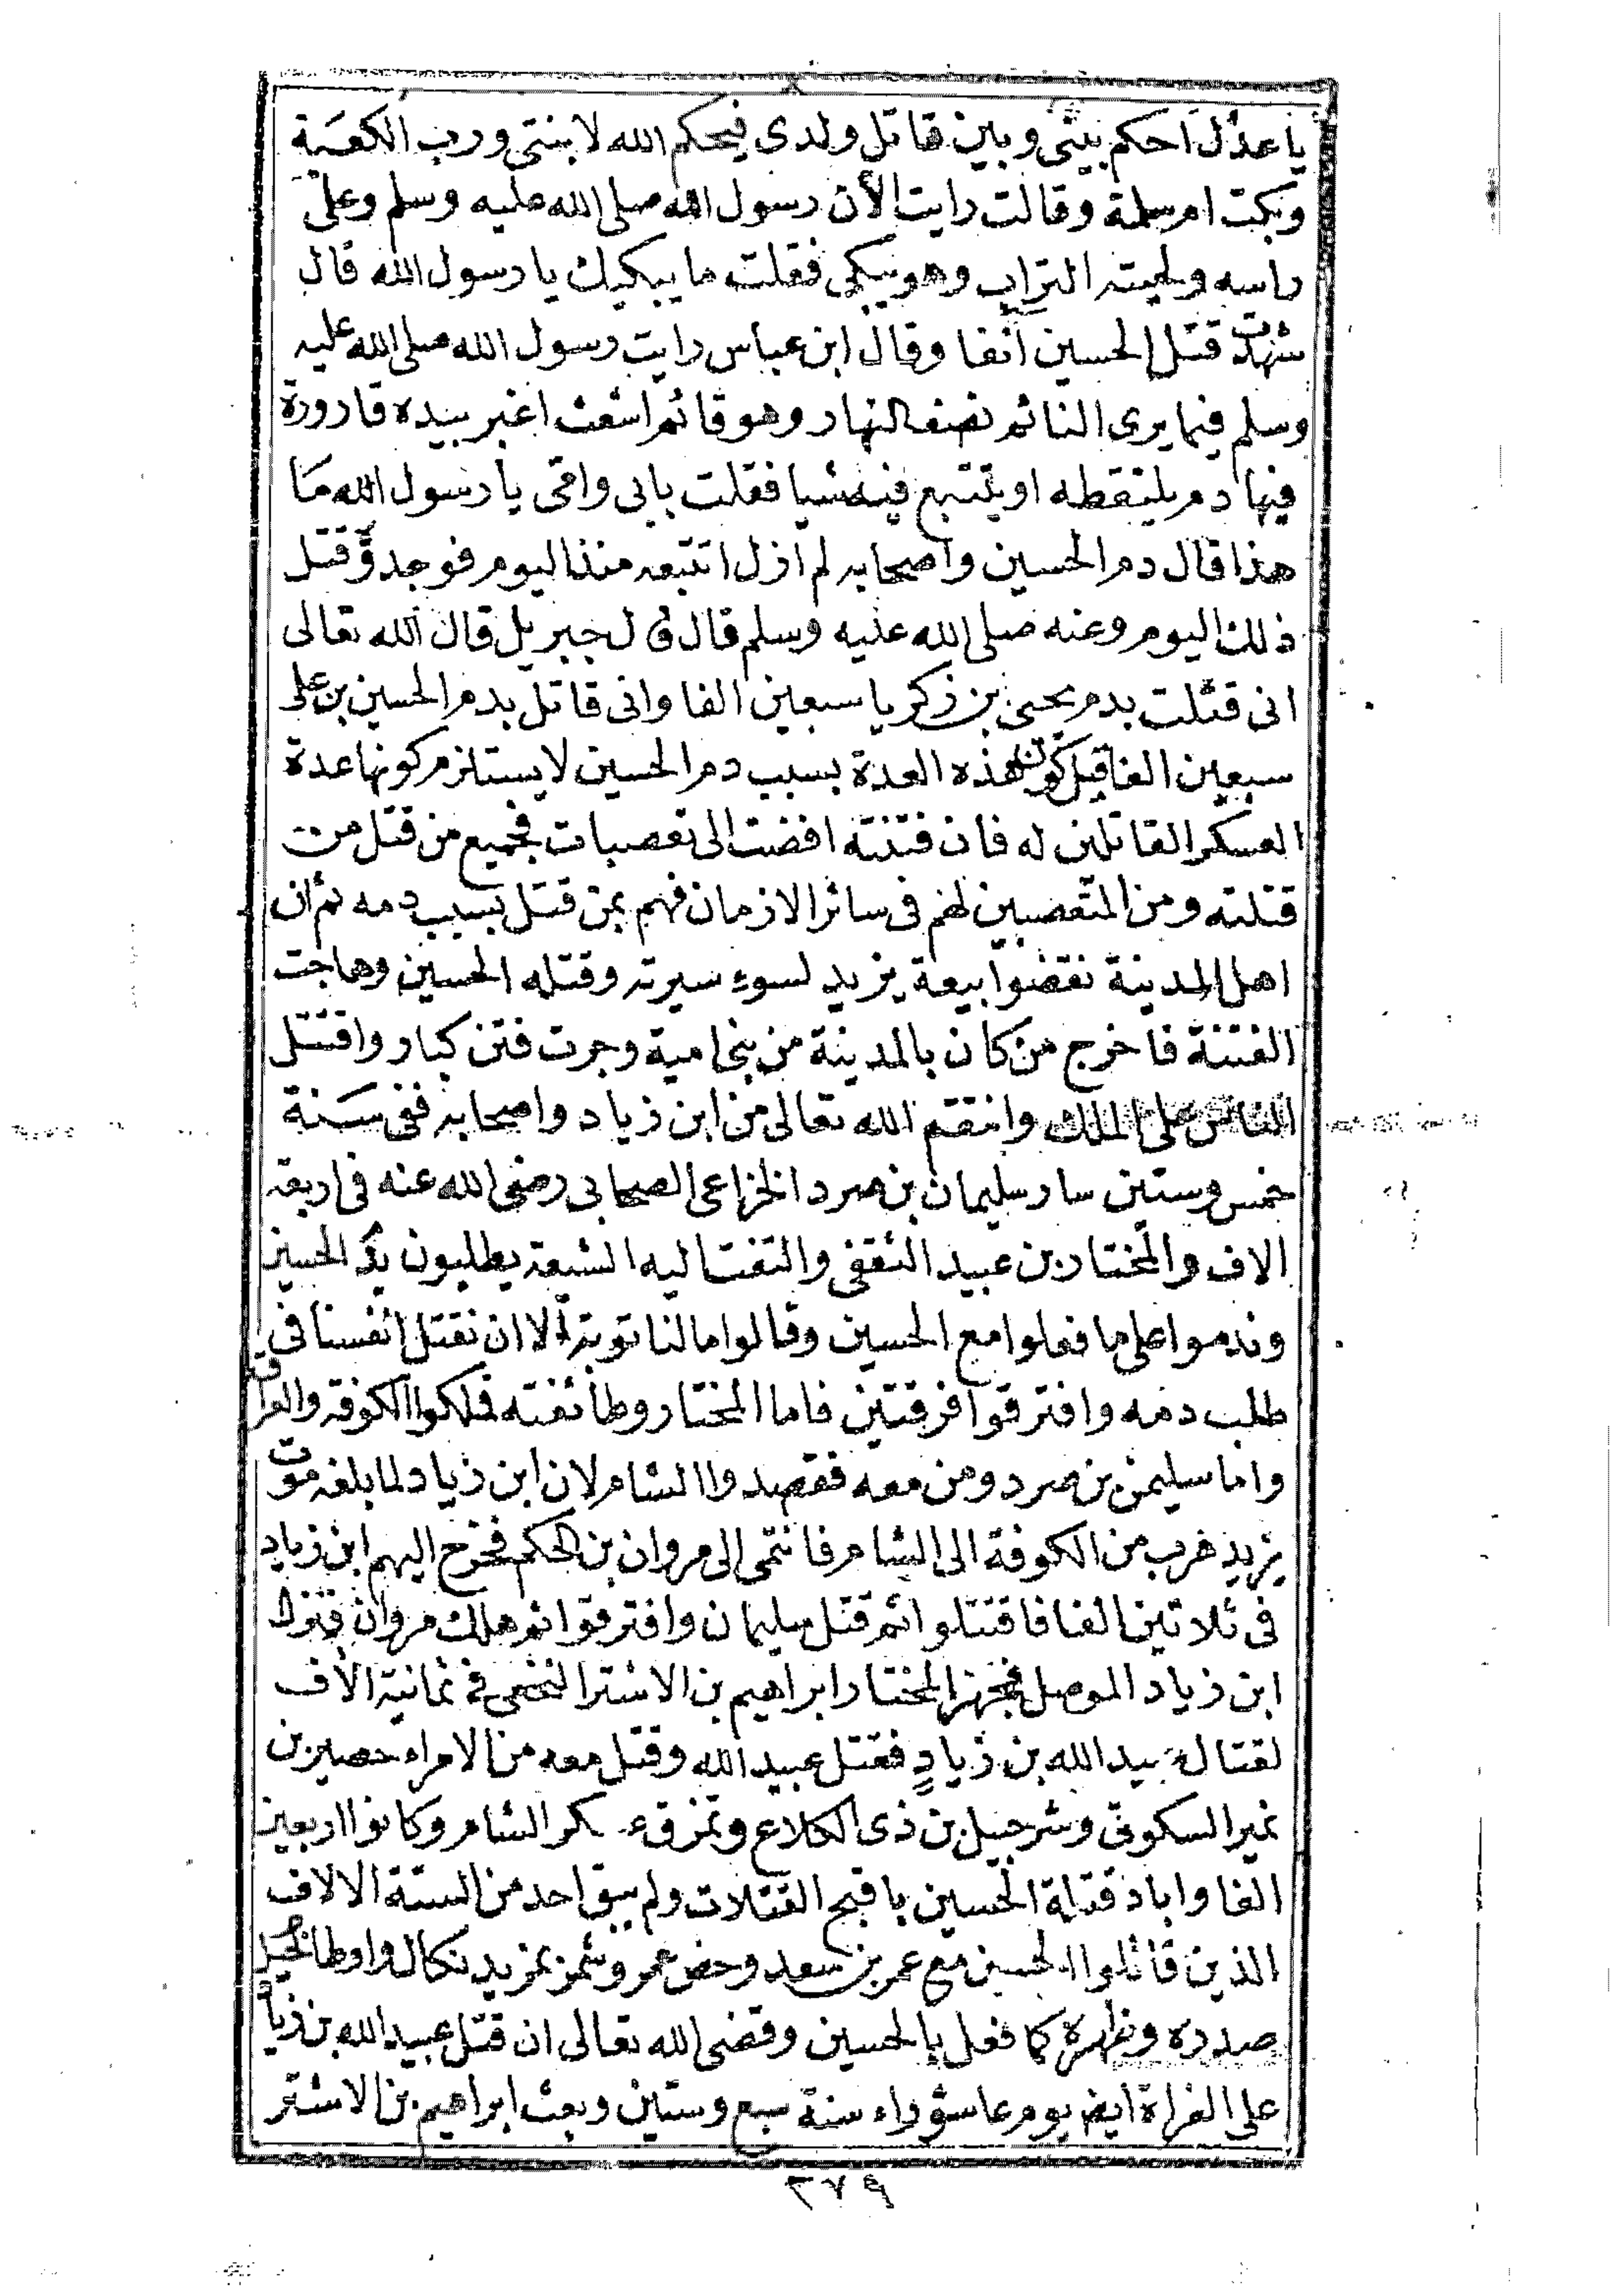 يا عدل احكم بيني وبين قاتل ولدى فيحكم الله لابنتى ورب الكعبة
وبكت ام سلمة وقالت رايت الآن رسول الله صلى الله عليه وسلم وعلى
راسه ولحيته التراب وهو يبكى فقلت ما يبكيك يا رسول الله قال
شهدت قتل الحسين آنفا وقال ابن عباس رايت رسول الله صلى الله عليه
وسلم فيما يرى النائم نصف النهار وهو قائم اشعث اغبر بيده قارورة
فيها دم يلتقطه او يتتبع فيه شيا فقلت بابى وامى يا رسول الله ما
هذا قال دم الحسين واصحابه لم ازل اتتبعه منذ اليوم فوجد وقتل
ذلك اليوم وعنه صلى الله عليه وسلم قال قال جبريل قال الله تعالى
انى قتلت بدم يحيى بن زكريا سبعين الفا وانى قاتل بدم الحسين بن على
سبعين الفا قيل كون هذه العدة بسبب دم الحسين لا يستلزم كونها عدة
العسكر القاتلين له فان فتنته افضت الى تعصبات فجميع من قتل من
قتلته ومن المتعصبين لهم فى سائر الازمان فهم ممن قتل بسبب دمه ثم ان
اهل المدينة نقضوا بيعة يزيد لسوء سيرته وقتله الحسين وهاجت
الفتنة فاخرج من كان بالمدينة من بنى امية وجرت فتن كبار واقتتل
الناس على الملك وانتقم الله تعالى من ابن زياد واصحابه ففى سنة
خمس وستين سار سليمان بن صرد الخزاعى الصحابى رضى الله عنه فى اربعة
الاف والمختار بن عبيد الثقفى والتفت اليه الشيعة يطلبون بدم الحسين
وندموا على ما فعلوا مع الحسين وقالوا ما لنا توبة الا ان نقتل انفسنا فى
طلب دمه وافترقوا فرقتين فاما المختار وطائفته فملكوا الكوفة والعراق
واما سليمن بن صرد ومن معه فقصدوا الشام لان ابن زياد لما بلغه موت
يزيد هرب من الكوفة الى الشام فانتمى الى مروان بن الحكم فخرج اليهم ابن زياد
فى ثلاثين الفا فاقتتلوا ثم قتل سليمان وافترقوا ثم هلك مروان فنزل
ابن زياد الموصل فجهز المختار ابراهيم بن الاشتر النخعى فى ثمانية الاف
لقتال عبيد الله بن زياد فقتل عبيد الله وقتل معه من الامراء حصين بن
نمير السكونى وشرحبيل بن ذى الكلاع وتمزق عسكر الشام وكانوا اربعين
الفا واباد قتلة الحسين باقبح القتلات ولم يبق احد من الستة الالاف
الذين قاتلوا الحسين مع عمر بن سعد وخص عمر وشمر بمزيد نكال واوطا الخيل
صدره وظهره كما فعل بالحسين وقضى الله تعالى ان قتل عبيد الله بن زياد
على الفراة ايضا يوم عاشوراء سنة سبع وستين وبعث ابراهيم بن الاشتر
٣٧٩